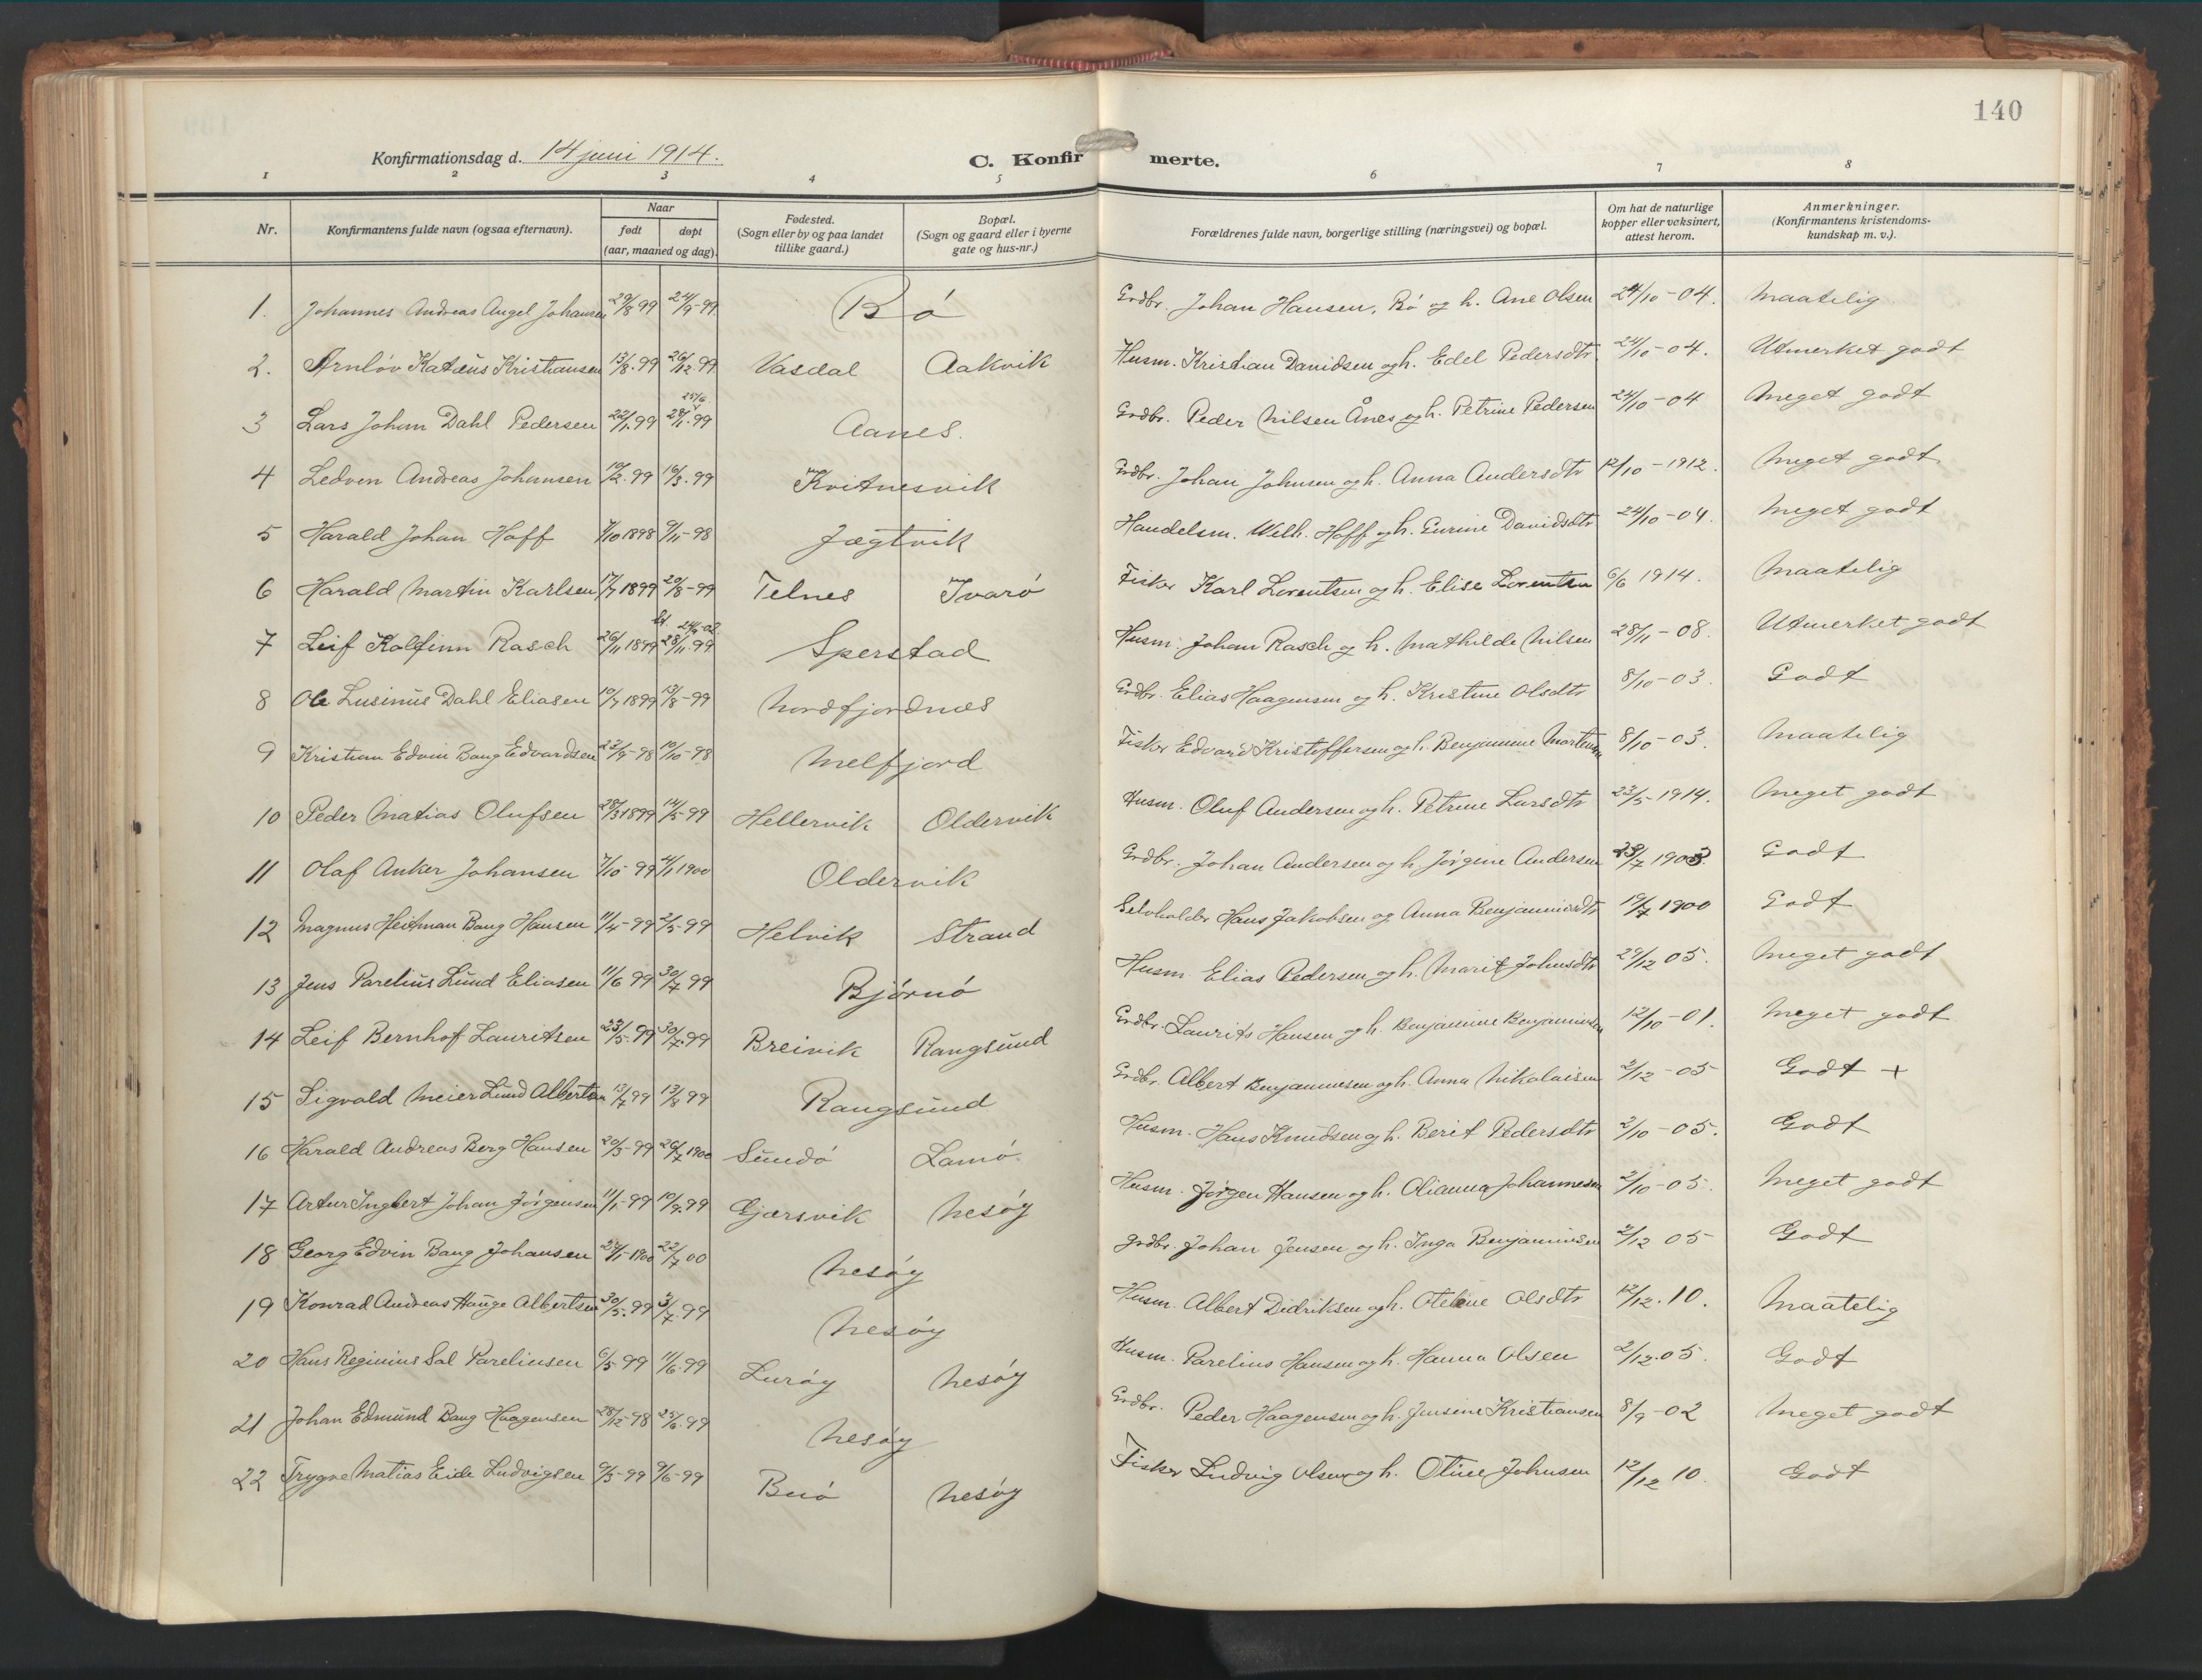 140
Konfirmationsdag d. 14 juni 1914.
C. Konfirmerte.
1 2 3 4 5 6 7 8
Nr. | Konfirmantens fulde navn (ogsaa efternavn). | Naar født døpt (aar, maaned og dag) | Fødested. (Sogn eller by og paa landet tillike gaard.) | Bopæl. (Sogn og gaard eller i byerne gate og hus-nr.) | Forældrenes fulde navn, borgerlige stilling (næringsvei) og bopæl. | Om hat de naturlige kopper eller vaksinert, attest herom. | Anmerkninger. (Konfirmantens kristendomskundskap m. v.).
1. Johannes Andreas Angel Johansen 29/8 99 24/9-99 Ró Grdbr. Johan Hansen, Ró og h. Ane Olsen 24/10-04. Maatelig
2. Arnlóv Katæus Kristiansen 13/8.99 26/12.99 Vasdal Aakvik Husm. Kristian Davidsen og h. Edel Pedersdtr. 24/10-04. Utmerket godt
3 Lars Johan Dahl Pedersen 22/1.99 28/1.99 25/6 Aanes. Grdbr. Peder Nilsen Ånes og h. Petrine Pedersen 24/10-04 Meget godt
4 Ledven Andreas Johansen 10/2.99 16/3.99 Kvitnesvik Grdbr. Johan Johnsen og h. Anna Andersdtr 12/10-1912. Meget godt
5 Harald Johan Hoff 7/10 1898 9/11-98 Jægtvik Handelsm. Welh. Hoff og h. Gurine Davidsdtr 24/10-04. Meget godt
6 Harald Martin Karlsen 17/7 1899 20/8-99 Telnes Ivaró Fisker Karl Lorentsen og h. Elise Lorentsen 6/6 1914. Maatelig
7 Leif Kolfinn Rasch 26/11 1899 28/11.99 24/9-02 Sperstad Husm. Johan Rasch og h. Mathilde Nilsen 28/11-08. Utmerket godt
8 Ole Lusinus Dahl Eliasen 10/7 1899 13/8-99 Nordfjordnes Grdbr. Elias Haagensen og h. Kristine Olsdtr 8/10-03. Godt
9 Kristian Edvin Bang Edvardsen 23/9-98 10/10-98 Melfjord Fisker Edvard Kristoffersen og h. Benjamine Martinsen 8/10-03. Maatelig
10 Peder Matias Olufsen 28/3 1899 14/5-99 Hellervik Oldervik Husm. Oluf Andersen og h. Petrine Larsdtr 23/5-1914. Meget godt
11 Olaf Anker Johansen 7/10-99 4/1 1900 Oldervik Grdbr. Johan Andersen og h. Jórgine Andersen 28/7 1903. Godt
12 Magnus Heitman Bang Hansen 11/4-99 2/5-99 Helvik Strand Selvholder Hans Jakobsen og Anna Benjaminsdtr 19/7 1900 Godt
13 Jens Parelius Lund Eliasen 11/6 99 30/7 99 Bjórnó Husm. Elias Pedersen og h. Marit Johnsdtr 29/12 05. Meget godt
14 Leif Bernhof Lauritsen 23/5.99 30/7.99 Breivik Rangsund Grdbr. Laurits Hansen og h. Benjamine Benjaminsen 12/10-01. Meget godt
15 Sigvald Meier Lund Albertsen 13/7 99 13/8 99 Rangsund Grdbr. Albert Benjaminsen og h. Anna Nikolaisen 2/12-05 Godt +
16 Harald Andreas Berg Hansen 20/5-99 26/7 1900 Sundó Lamó. Husm. Hans Knudsen og h. Berit Pedersdtr 2/10-05. Godt
17 Artur Ingbert Johan Jórgensen 11/1-99 10/9.99 Gjærsvik Nesóy Husm. Jórgen Hansen og h. Olianna Johannesen 2/10-05. Meget godt
18 Georg Edvin Bang Johansen 27/1-1900 22/7 00 Nesóy Grdbr. Johan Jensen og h. Inga Benjaminsen 2/12 05 Godt
19 Konrad Andreas Hauge Albertsen 30/5.99 3/7.99 Nesóy Husm. Albert Didriksen og h. Oteline Olsdtr 12/12.10. Maatelig
20 Hans Reginius Sal Pareliusen 6/5-99 11/6.99 Luróy Nesóy Husm. Parelius Hansen og h. Hanna Olsen 2/12.05. Godt
21 Johan Edmund Bang Haagensen 28/12-98 25/6.99 Nesóy Grdbr. Peder Haagensen og h. Jensine Kristiansen 8/9-02 Meget godt
22 Trygve Matias Eide Ludvigsen 9/3-99 9/6-99 Buó Nesóy Fisker Ludvig Olsen og h. Otine Johnsen 12/12 10. Godt